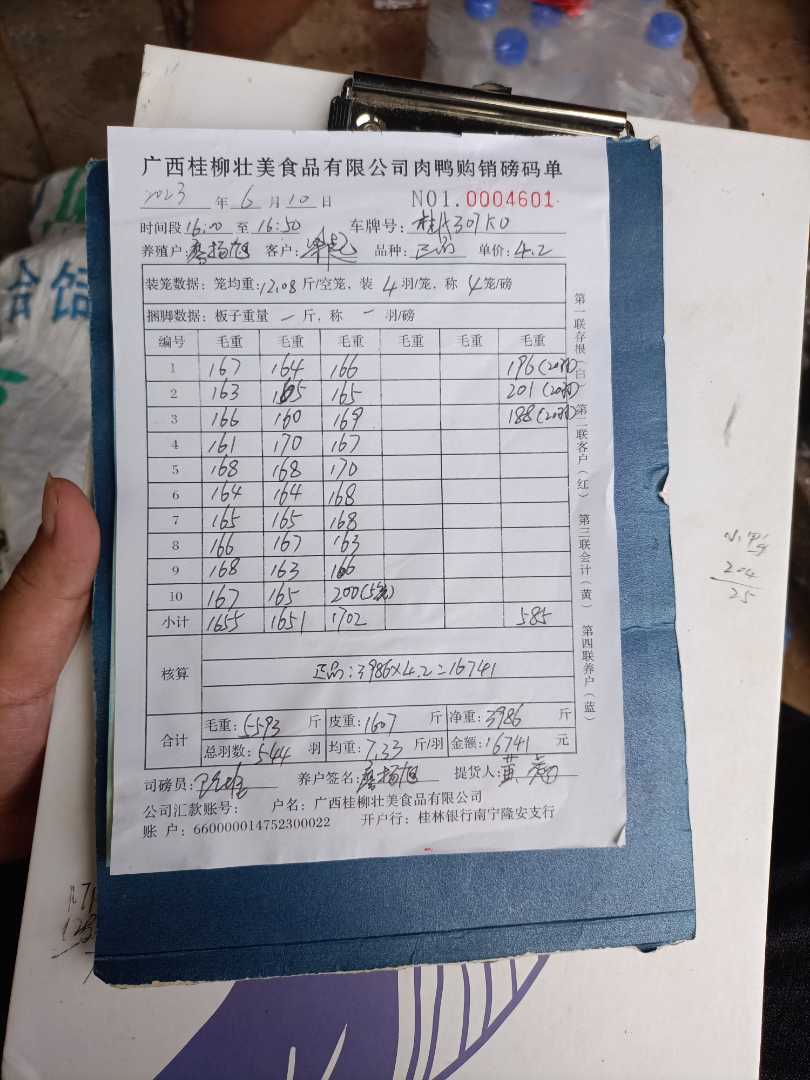 广西桂柳壮美食品有限公司肉鸭购销磅码单
2023 年 6 月 10 日 NO1.0004601
时间段 16:00 至 16:50 车牌号: 307K0
养殖户: 客户: 品种: 正品 单价: 4.2
装笼数据: 笼均重: 12.08 斤/空笼, 装 4 羽/笼, 称 4 笼/磅
捆脚数据: 板子重量 一 斤, 称 一 羽/磅
编号 毛重 毛重 毛重 毛重 毛重 毛重
1 167 164 166 196(20羽)
2 163 165 165 201(20羽)
3 166 160 169 188(20羽)
4 161 170 167
5 168 168 170
6 164 164 168
7 165 165 168
8 166 167 163
9 168 163 166
10 167 165 200(5笼)
小计 1655 1651 1702 585
核算 正品:3986×4.2=16741
合计 毛重: 5593 斤 皮重: 1607 斤 净重: 3986 斤
总羽数: 544 羽 均重: 7.33 斤/羽 金额: 16741 元
司磅员: 养户签名: 提货人: 黄
公司汇款账号: 户名: 广西桂柳壮美食品有限公司
账 户: 660000014752300022 开户行: 桂林银行南宁隆安支行
第一联存根(白) 第二联客户(红) 第三联会计(黄) 第四联养户(蓝)
204
25